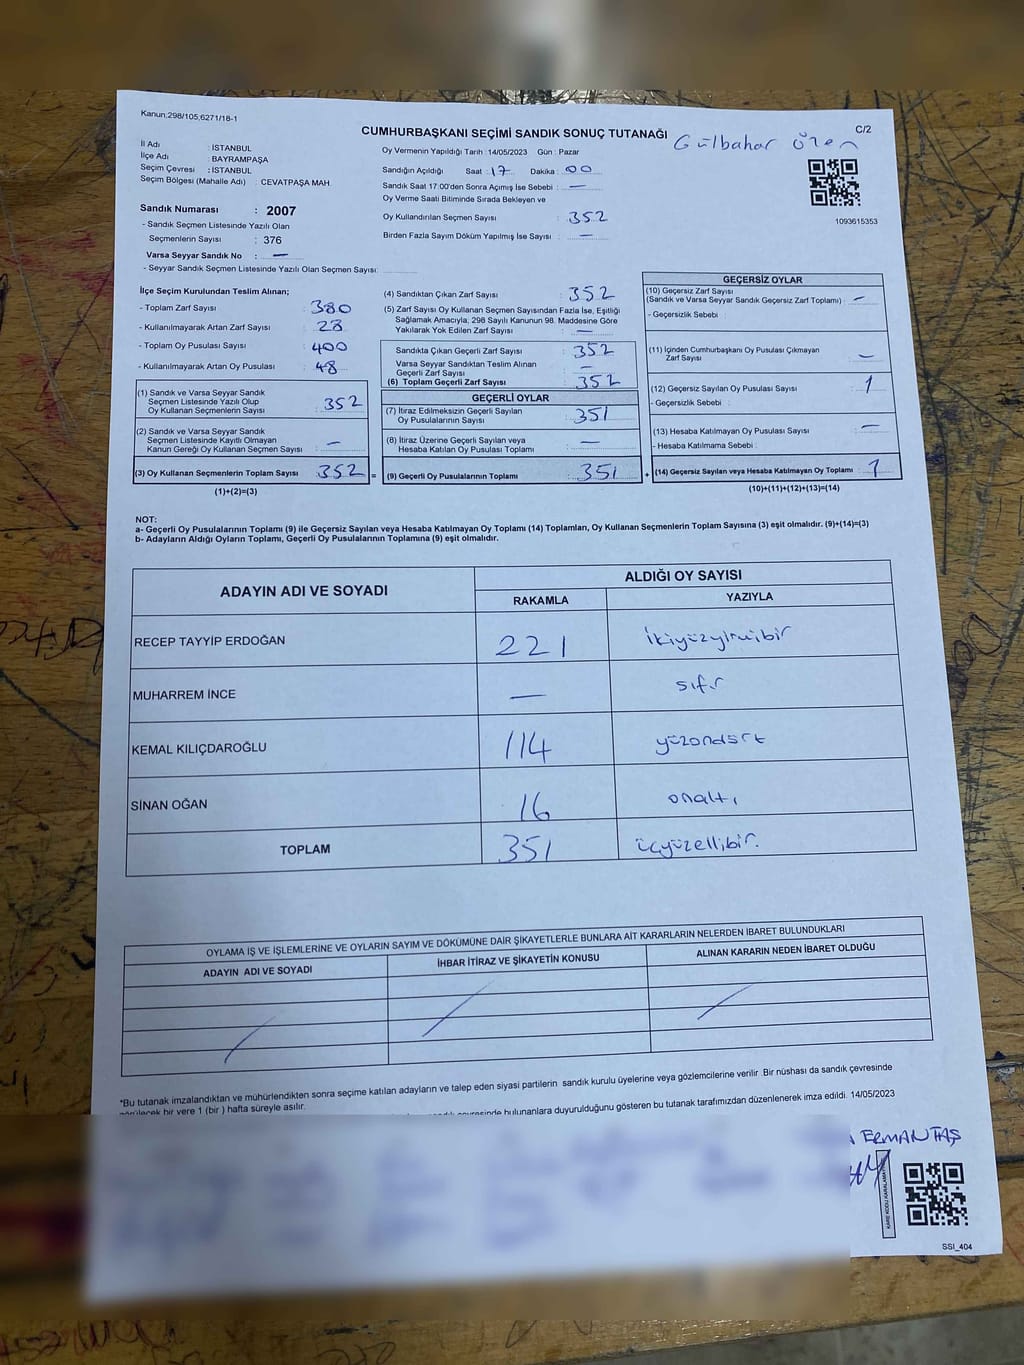 Kanun,298/105,6271/18-1
C/2
CUMHURBAŞKANI SEÇİMİ SANDIK SONUÇ TUTANAĞI
Gülbahar Ören
İl Adı : İSTANBUL
İlçe Adı : BAYRAMPAŞA
Seçim Çevresi : İSTANBUL
Seçim Bölgesi (Mahalle Adı) : CEVATPAŞA MAH.
Sandık Numarası : 2007
- Sandık Seçmen Listesinde Yazılı Olan
Seçmenlerin Sayısı : 376
Varsa Seyyar Sandık No : —
- Seyyar Sandık Seçmen Listesinde Yazılı Olan Seçmen Sayısı:
Oy Vermenin Yapıldığı Tarih :14/05/2023 Gün : Pazar
Sandığın Açıldığı Saat : 17 Dakika : 00
Sandık Saat 17:00'den Sonra Açımış İse Sebebi : —
Oy Verme Saati Bitiminde Sırada Bekleyen ve
Oy Kullandırılan Seçmen Sayısı : 352
Birden Fazla Sayım Döküm Yapılmış İse Sayısı : —
1093615353
İlçe Seçim Kurulundan Teslim Alınan;
- Toplam Zarf Sayısı : 380
- Kullanılmayarak Artan Zarf Sayısı : 28
- Toplam Oy Pusulası Sayısı : 400
- Kullanılmayarak Artan Oy Pusulası : 48
(1) Sandık ve Varsa Seyyar Sandık
Seçmen Listesinde Yazılı Olup
Oy Kullanan Seçmenlerin Sayısı : 352
(2) Sandık ve Varsa Seyyar Sandık
Seçmen Listesinde Kayıtlı Olmayan
Kanun Gereği Oy Kullanan Seçmen Sayısı : —
(3) Oy Kullanan Seçmenlerin Toplam Sayısı : 352 =
(1)+(2)=(3)
(4) Sandıktan Çıkan Zarf Sayısı : 352
(5) Zarf Sayısı Oy Kullanan Seçmen Sayısından Fazla İse, Eşitliği
Sağlamak Amacıyla, 298 Sayılı Kanunun 98. Maddesine Göre
Yakılarak Yok Edilen Zarf Sayısı : —
Sandıkta Çıkan Geçerli Zarf Sayısı : 352
Varsa Seyyar Sandıktan Teslim Alınan
Geçerli Zarf Sayısı : —
(6) Toplam Geçerli Zarf Sayısı : 352
GEÇERLİ OYLAR
(7) İtiraz Edilmeksizin Geçerli Sayılan
Oy Pusulalarının Sayısı : 351
(8) İtiraz Üzerine Geçerli Sayılan veya
Hesaba Katılan Oy Pusulası Toplamı : —
(9) Geçerli Oy Pusulalarının Toplamı : 351 +
GEÇERSİZ OYLAR
(10) Geçersiz Zarf Sayısı
(Sandık ve Varsa Seyyar Sandık Geçersiz Zarf Toplamı) : —
- Geçersizlik Sebebi :
(11) İçinden Cumhurbaşkanı Oy Pusulası Çıkmayan
Zarf Sayısı : —
(12) Geçersiz Sayılan Oy Pusulası Sayısı : 1
- Geçersizlik Sebebi :
(13) Hesaba Katılmayan Oy Pusulası Sayısı : —
- Hesaba Katılmama Sebebi :
(14) Geçersiz Sayılan veya Hesaba Katılmayan Oy Toplamı : 1
(10)+(11)+(12)+(13)=(14)
NOT:
a- Geçerli Oy Pusulalarının Toplamı (9) ile Geçersiz Sayılan veya Hesaba Katılmayan Oy Toplamı (14) Toplamları, Oy Kullanan Seçmenlerin Toplam Sayısına (3) eşit olmalıdır. (9)+(14)=(3)
b- Adayların Aldığı Oyların Toplamı, Geçerli Oy Pusulalarının Toplamına (9) eşit olmalıdır.
ADAYIN ADI VE SOYADI ALDIĞI OY SAYISI
RAKAMLA YAZIYLA
RECEP TAYYİP ERDOĞAN 221 ikiyüzyirmibir
MUHARREM İNCE — sıfır
KEMAL KILIÇDAROĞLU 114 yüzondört
SİNAN OĞAN 16 onaltı
TOPLAM 351 üçyüzellibir.
OYLAMA İŞ VE İŞLEMLERİNE VE OYLARIN SAYIM VE DÖKÜMÜNE DAİR ŞİKAYETLERLE BUNLARA AİT KARARLARIN NELERDEN İBARET BULUNDUKLARI
ADAYIN ADI VE SOYADI İHBAR İTİRAZ VE ŞİKAYETİN KONUSU ALINAN KARARIN NEDEN İBARET OLDUĞU
*Bu tutanak imzalandıktan ve mühürlendikten sonra seçime katılan adayların ve talep eden siyasi partilerin sandık kurulu üyelerine veya gözlemcilerine verilir .Bir nüshası da sandık çevresinde
görülecek bir yere 1 (bir ) hafta süreyle asılır.
çevresinde bulunanlara duyurulduğunu gösteren bu tutanak tarafımızdan düzenlenerek imza edildi. 14/05/2023
ERMAN TAŞ
SSI_404